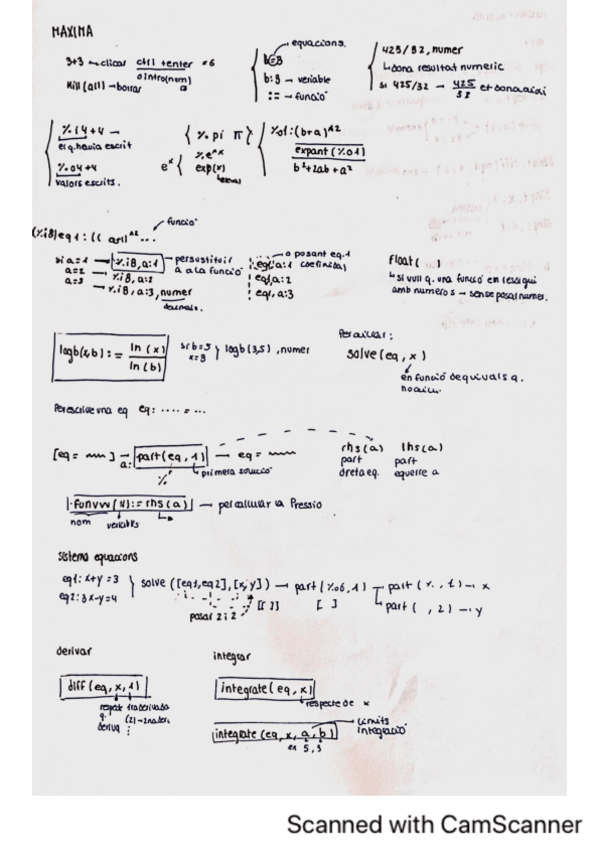 MAXIMA
3+3 → clicar ctrl +enter =6
o intro(num)
Kill(all) → borrar
equacions.
b=3
b:3 → variable
:= → funció
425/32, numer
↳ dona resultat numeric
si 425/32 → 425/32 et dona així
%i4+4 →
el q. havia escrit
%o4+4
valors escrits.
{ %pi π }
e^x { %e^x
exp(x)
%o1:(b+a)^2
expant(%o1)
b²+2ab+a²
funció
(%i8)eq1:((
si a=1 → %i8,a:1 → per sustituir
a=2 → %i8,a:2 a a la funció
a=3 → %i8,a:3,numer
decimals.
o posant eq.1
eq1,a:1
eq1,a:2
eq1,a:3
float( )
↳ si vull q. una funció
amb numeros → sense posar numer.
logb(x,b):= ln(x)/ln(b)
si b=5
x=3 } logb(3,5),numer
Per aïllar:
solve(eq,x)
en funció de qui vals q.
ho aïlli.
Per escriure una eq eq: .... = ...
[eq= ] → a: part(eq,1) → eq=
%
primera solució
rhs(a) lhs(a)
part part
dreta eq. esquerre a
funvw(V):= rhs(a) → per calcular la Pressio
nom variables
Sistema equacions
eq1: x+y=3
eq2: 3x-y=4 } solve([eq1,eq2],[x,y]) → part(%o6,1) → part(%,1) → x
[[ ]] [ ] part( ,2) → y
posar 2 i 2
derivar
integrar
diff(eq,x,1)
respect
q.
deriva
1ra derivada
(2) → 2na der.
integrate(eq,x)
respecte de x
integrate(eq,x,a,b)
limits
integració
ex 5,3
Scanned with CamScanner